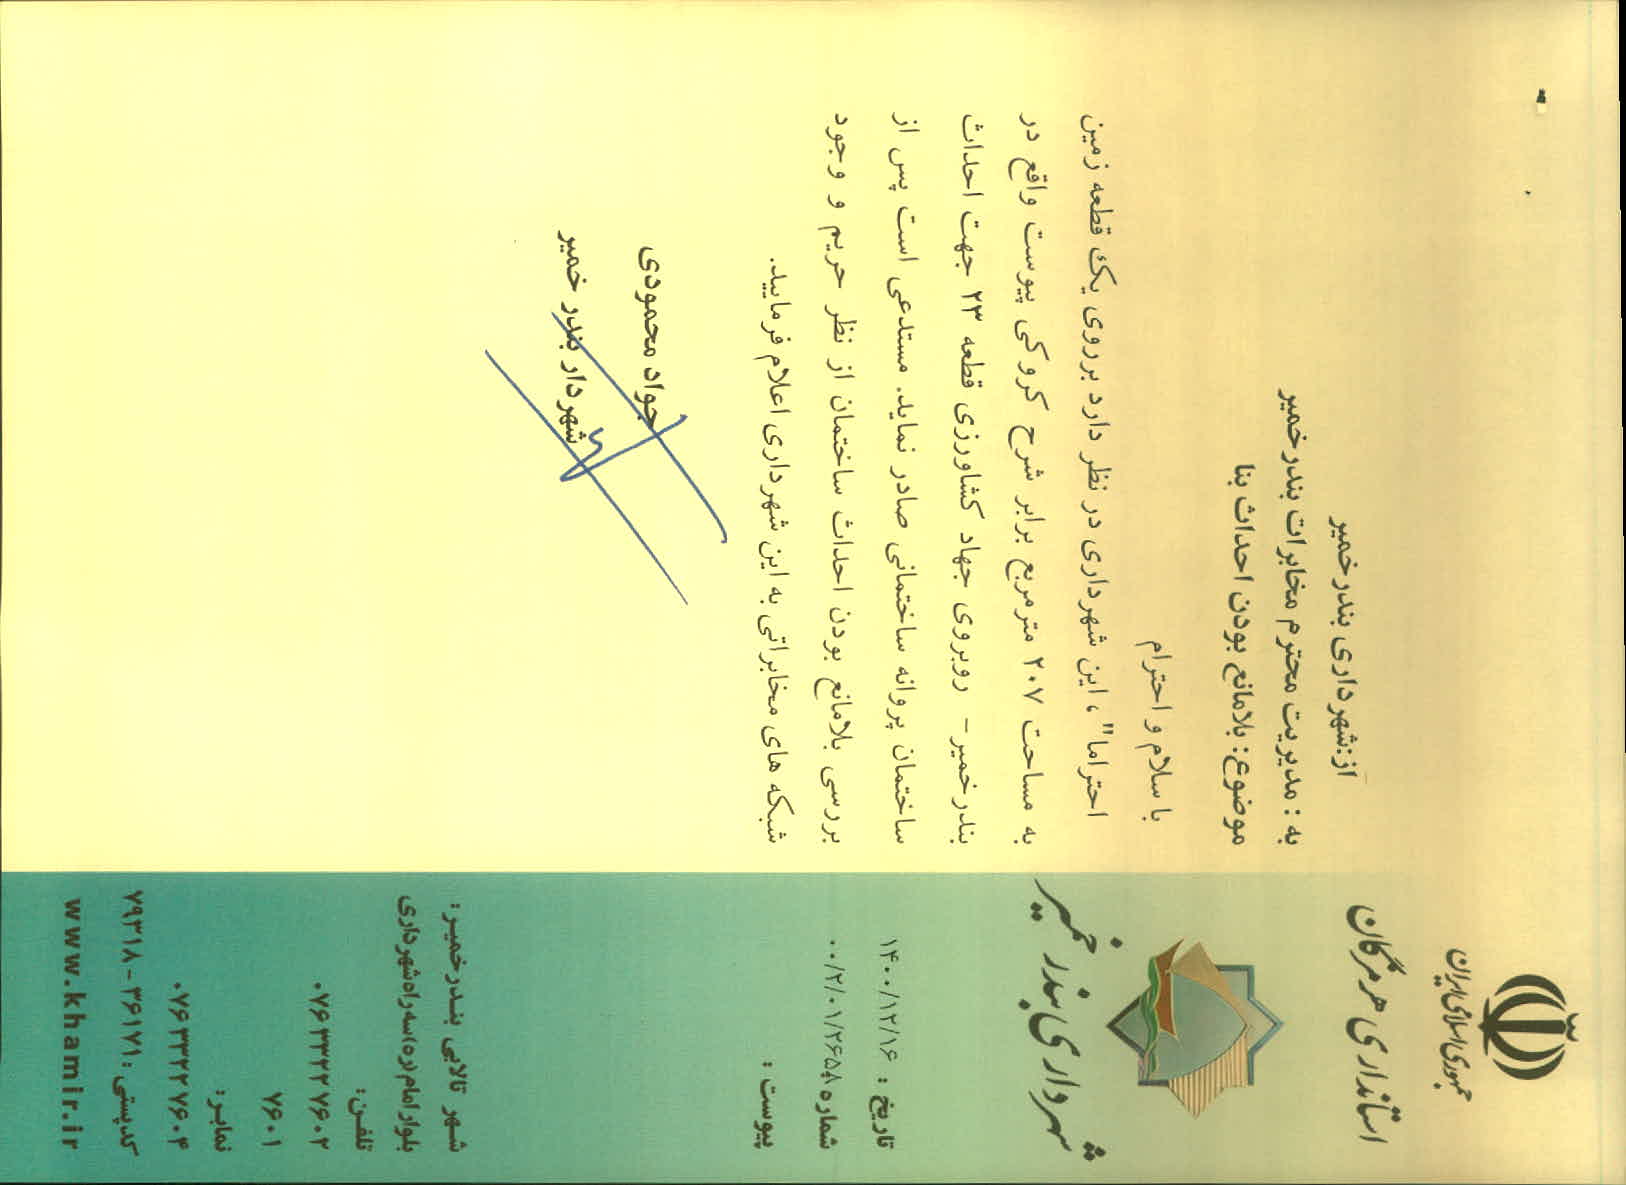 جمهوری اسلامی ایران
استانداری هرمزگان
شهرداری بندر خمیر
تاریخ : ۱۴۰۰/۱۲/۱۶
شماره ۰۰/۲/۰۱/۲۶۵۸
پیوست :
شهر تالابی بندرخمیر:
بلوار امام (ره) سه راه شهرداری
تلفن:
۰۷۶۳۳۲۲۷۶۰۲
۷۶۰۱
نمابر:
۰۷۶۳۳۲۲۷۶۰۴
کدپستی: ۳۶۱۷۱ - ۷۹۳۱۸
www.khamir.ir
از:شهرداری بندرخمیر
به : مدیریت محترم مخابرات بندرخمیر
موضوع: بلامانع بودن احداث بنا
با سلام و احترام
احتراما"، این شهرداری در نظر دارد برروی یک قطعه زمین
به مساحت ۲۰۷ مترمربع برابر شرح کروکی پیوست واقع در
بندرخمیر- روبروی جهاد کشاورزی قطعه ۲۳ جهت احداث
ساختمان پروانه ساختمانی صادر نماید. مستدعی است پس از
بررسی بلامانع بودن احداث ساختمان از نظر حریم و وجود
شبکه های مخابراتی به این شهرداری اعلام فرمایید.
جواد محمودی
شهردار بندر خمیر